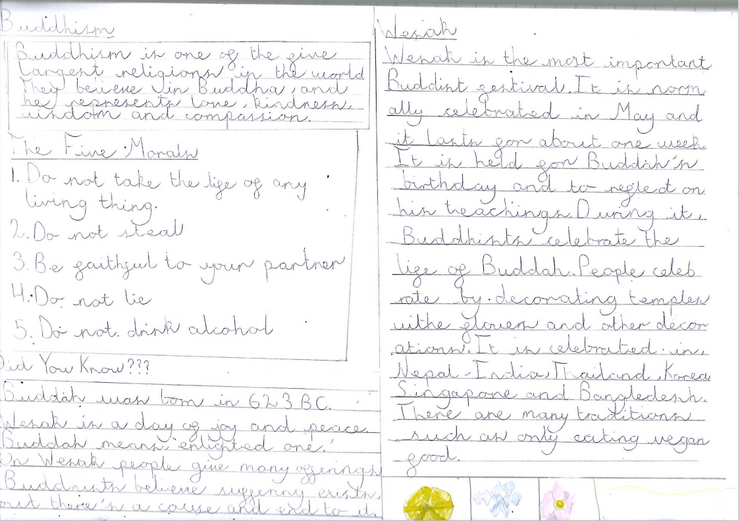 Buddhism
Buddhism is one of the five
largest religions in the world
They believe in Buddha, and
he represents love, kindness,
wisdom and compassion.
The Five Morals
1. Do not take the life of any
living thing.
2. Do not steal
3. Be faithful to your partner
4. Do not lie
5. Do not drink alcohol
Did You Know???
Buddah was born in 623 BC.
Wesak is a day of joy and peace.
Buddah means 'enlighted one.'
On Wesak people give many offerings
Buddhists believe suffering exists,
but there's a cause and end to it.
Wesak
Wesak is the most important
Buddist festival. It is norm
ally celebrated in May and
it lasts for about one week.
It is held for Buddah's
birthday and to reflect on
his teachings. During it,
Buddhists celebrate the
life of Buddah. People celeb
rate by decorating temples
withe flowers and other decor
ations. It is celebrated in,
Nepal, India, Thailand, Korea
Singapore and Bangledesh.
There are many traditions
such as only eating vegan
food.